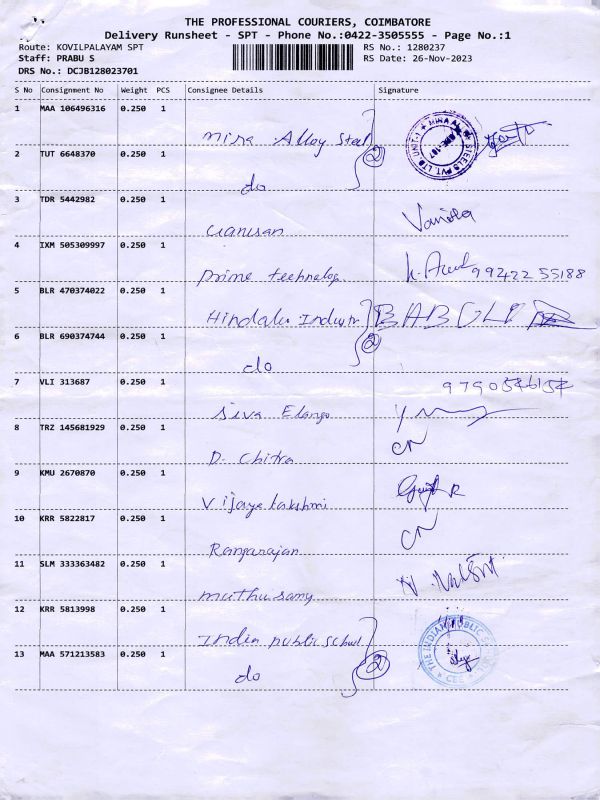 THE PROFESSIONAL COURIERS, COIMBATORE
Delivery Runsheet - SPT - Phone No.:0422-3505555 - Page No.:1
Route: KOVILPALAYAM SPT RS No.: 1280237
Staff: PRABU S RS Date: 26-Nov-2023
DRS No.: DCJB128023701
S No Consignment No Weight PCS Consignee Details Signature
1 MAA 106496316 0.250 1
Mira Alloy Steel 2
2 TUT 6648370 0.250 1
do
3 TDR 5442982 0.250 1
Vanitha
4 IXM 505309997 0.250 1
Prime technolog 99422 55188
5 BLR 470374022 0.250 1
Hindalu Industr 2 BABULU
6 BLR 690374744 0.250 1
do
7 VLI 313687 0.250 1 9790546154
Siva Elango
8 TRZ 145681929 0.250 1
D. Chitra CN
9 KMU 2670870 0.250 1
Vijayelakshmi
10 KRR 5822817 0.250 1
Ranganajan CN
11 SLM 333363482 0.250 1
muthusamy
12 KRR 5813998 0.250 1
India public school 2 THE INDIAN PUBLIC
13 MAA 571213583 0.250 1
do